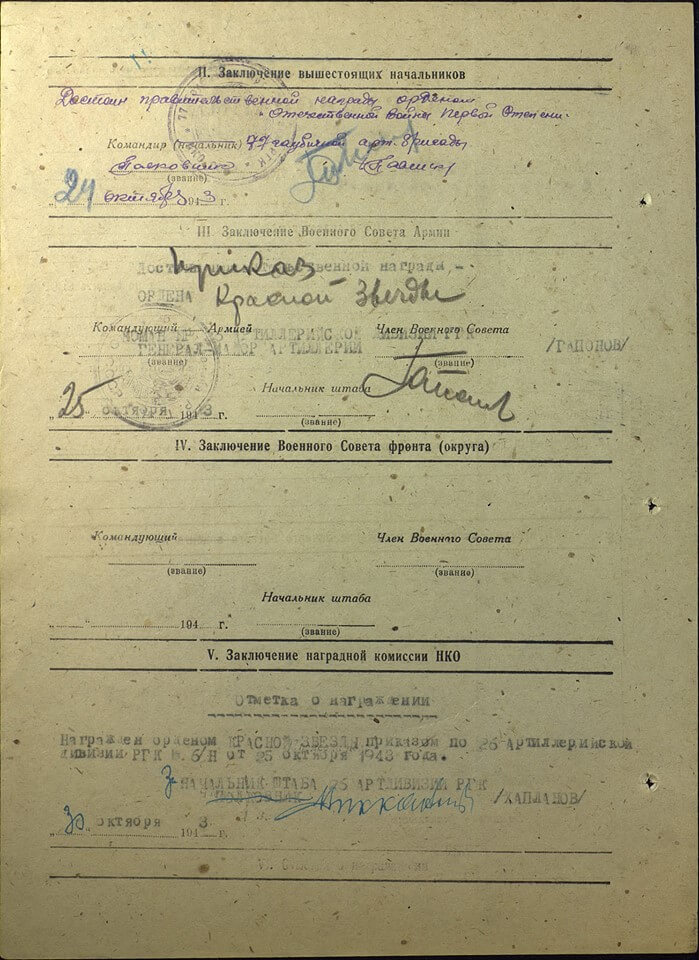 II. Заключение вышестоящих начальников
Достоин правительственной награды орденом
"Отечественной войны Первой Степени.
Командир (начальник) 77 гаубичной арт. бригады
(звание)
24 октября 1943 г.
III. Заключение Военного Совета Армии
Приказ
Достоин правительственной награды –
ОРДЕНА Красной Звезды
Командующий Армией Член Военного Совета
АРТИЛЛЕРИЙСКОЙ ДИВИЗИИ РГК
ГЕНЕРАЛ-МАЙОР АРТИЛЛЕРИИ /ГАПОНОВ/
(звание) (звание)
Начальник штаба
„25" октября 1943 г.
(звание)
IV. Заключение Военного Совета фронта (округа)
Командующий Член Военного Совета
(звание) (звание)
Начальник штаба
„ " 194 г.
(звание)
V. Заключение наградной комиссии НКО
Отметка о награждении
Награжден орденом КРАСНОЙ ЗВЕЗДЫ приказом по 26 Артиллерийской
дивизии РГК № б/н от 25 октября 1943 года.
За НАЧАЛЬНИК ШТАБА 26 АРТДИВИЗИИ РГК
Подполковник /ХАПЛАНОВ/
„30" октября 1943 г.
VI. Отметка о награждении